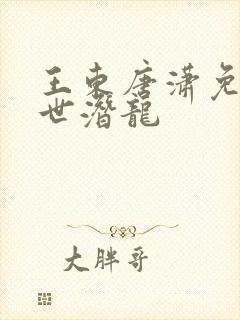 王东唐潇免
世潛龍
大胖哥